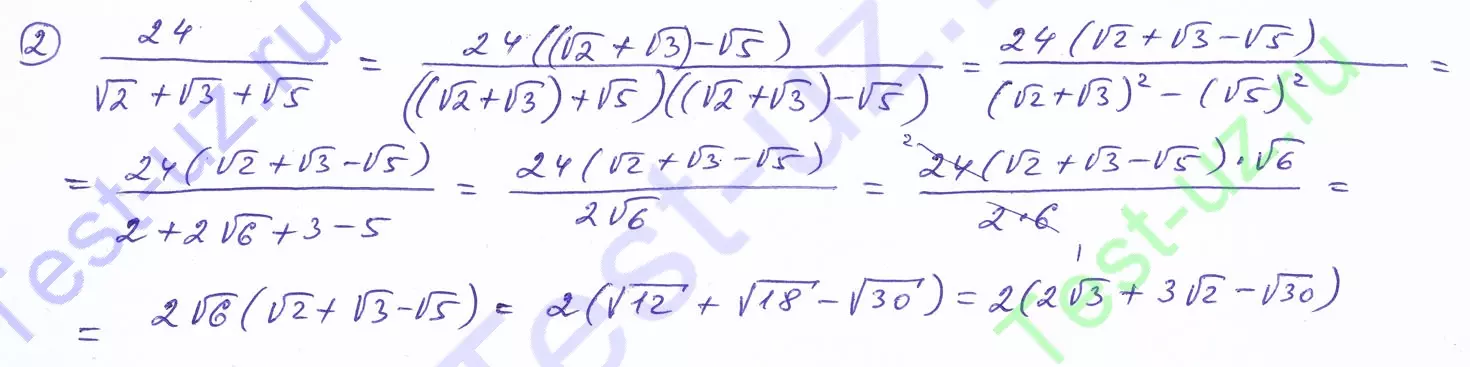 ② 24/(√2 + √3 + √5) = 24((√2 + √3) − √5)/(((√2 + √3) + √5)((√2 + √3) − √5)) = 24(√2 + √3 − √5)/((√2 + √3)² − (√5)²) =
= 24(√2 + √3 − √5)/(2 + 2√6 + 3 − 5) = 24(√2 + √3 − √5)/(2√6) = ²24(√2 + √3 − √5)·√6/(2·6) 1 =
= 2√6(√2 + √3 − √5) = 2(√12 + √18 − √30) = 2(2√3 + 3√2 − √30)
Test-uz.ru
Test-uz.ru
Test-uz.ru